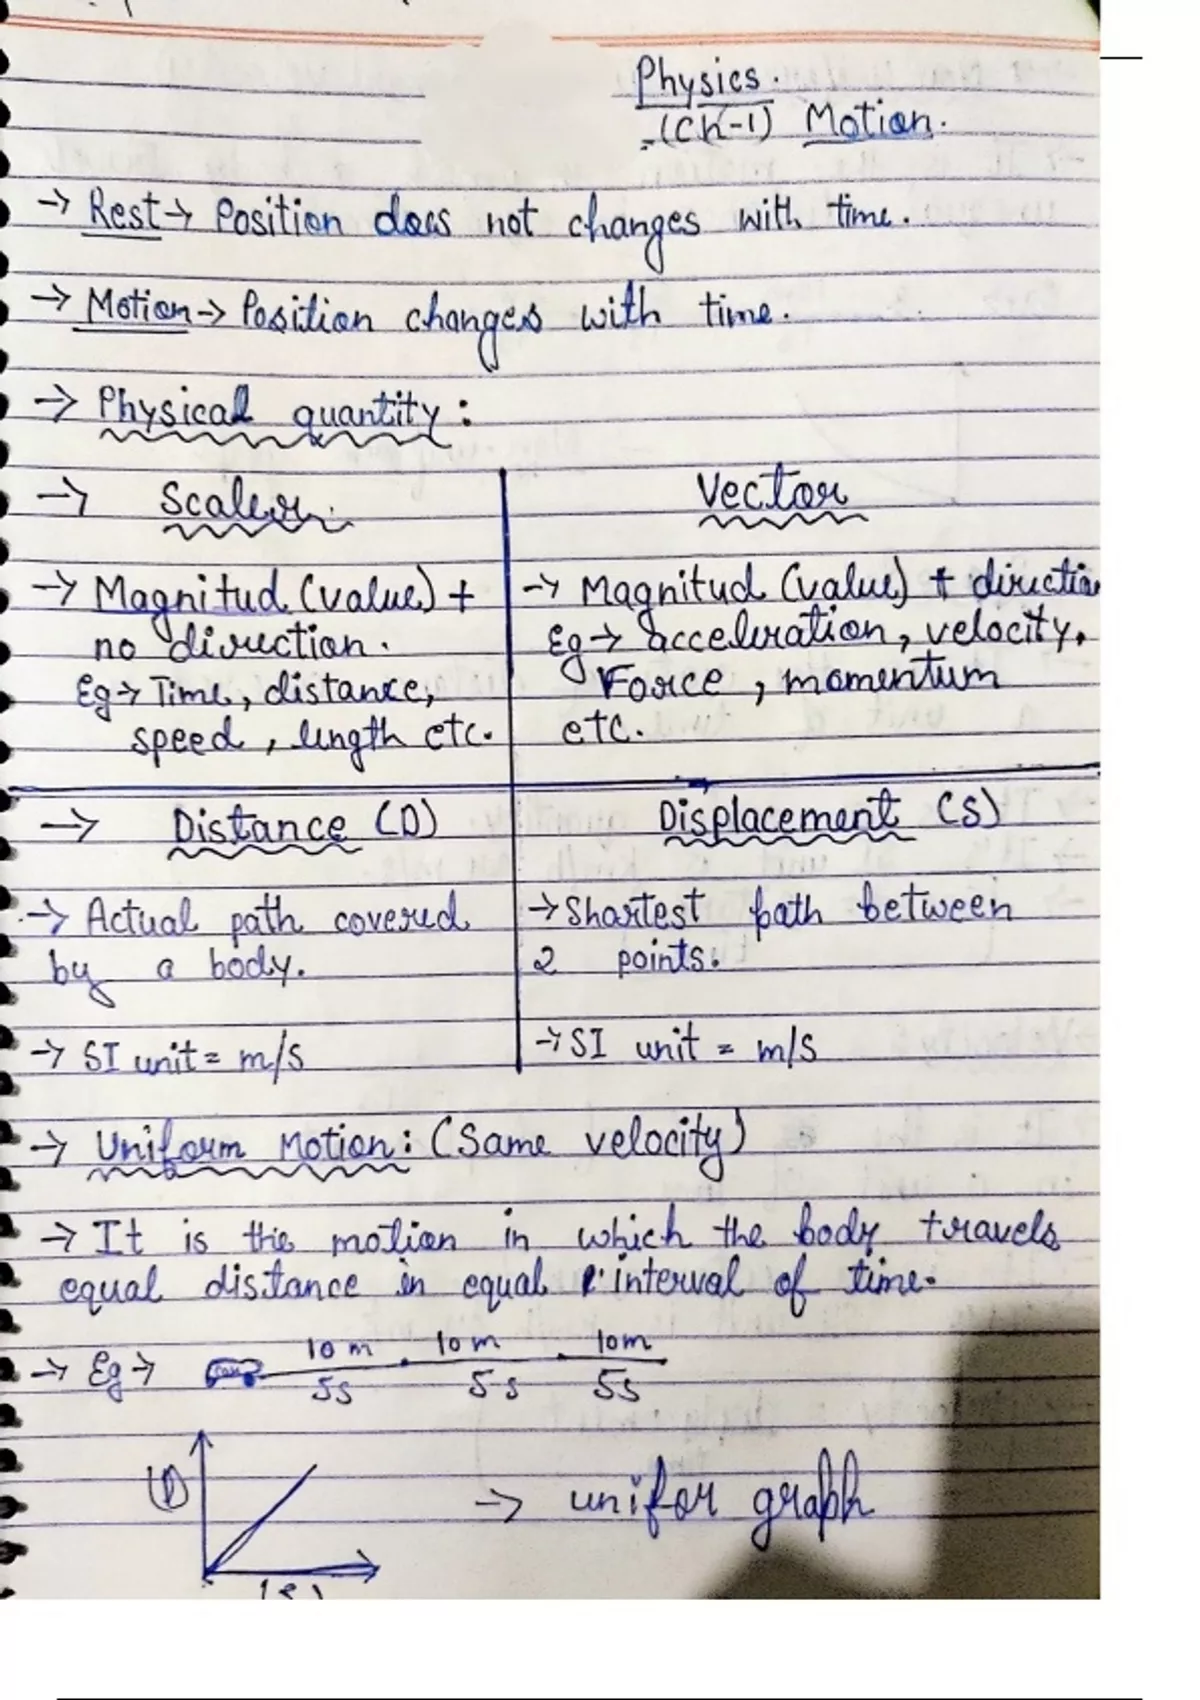 Physics.
(Ch-1) Motion.
→ Rest → Position does not changes with time.
→ Motion → Position changes with time.
→ Physical quantity :
→ Scaler.
→ Magnitud (value) +
no direction.
Eg → Time, distance,
speed, length etc.
Vector
→ Magnitud (value) + direction
Eg → acceleration, velocity,
Force, momentum
etc.
→ Distance (D)
→ Actual path covered
by a body.
→ SI unit = m/s
Displacement (S)
→ Shortest path between
2 points.
→ SI unit = m/s
→ Uniform Motion : (Same velocity)
→ It is the motion in which the body travels
equal distance in equal interval of time.
→ Eg → 10 m 10 m 10m
5s 5s 5s
(D)
→ unifor graph